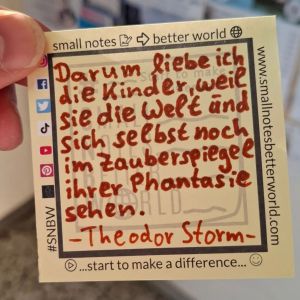 small notes better world
Darum liebe ich
die Kinder, weil
sie die Welt und
sich selbst noch
im Zauberspiegel
ihrer Phantasie
sehen.
-Theodor Storm-
...start to make a difference...
www.smallnotesbetterworld.com
#SNBW